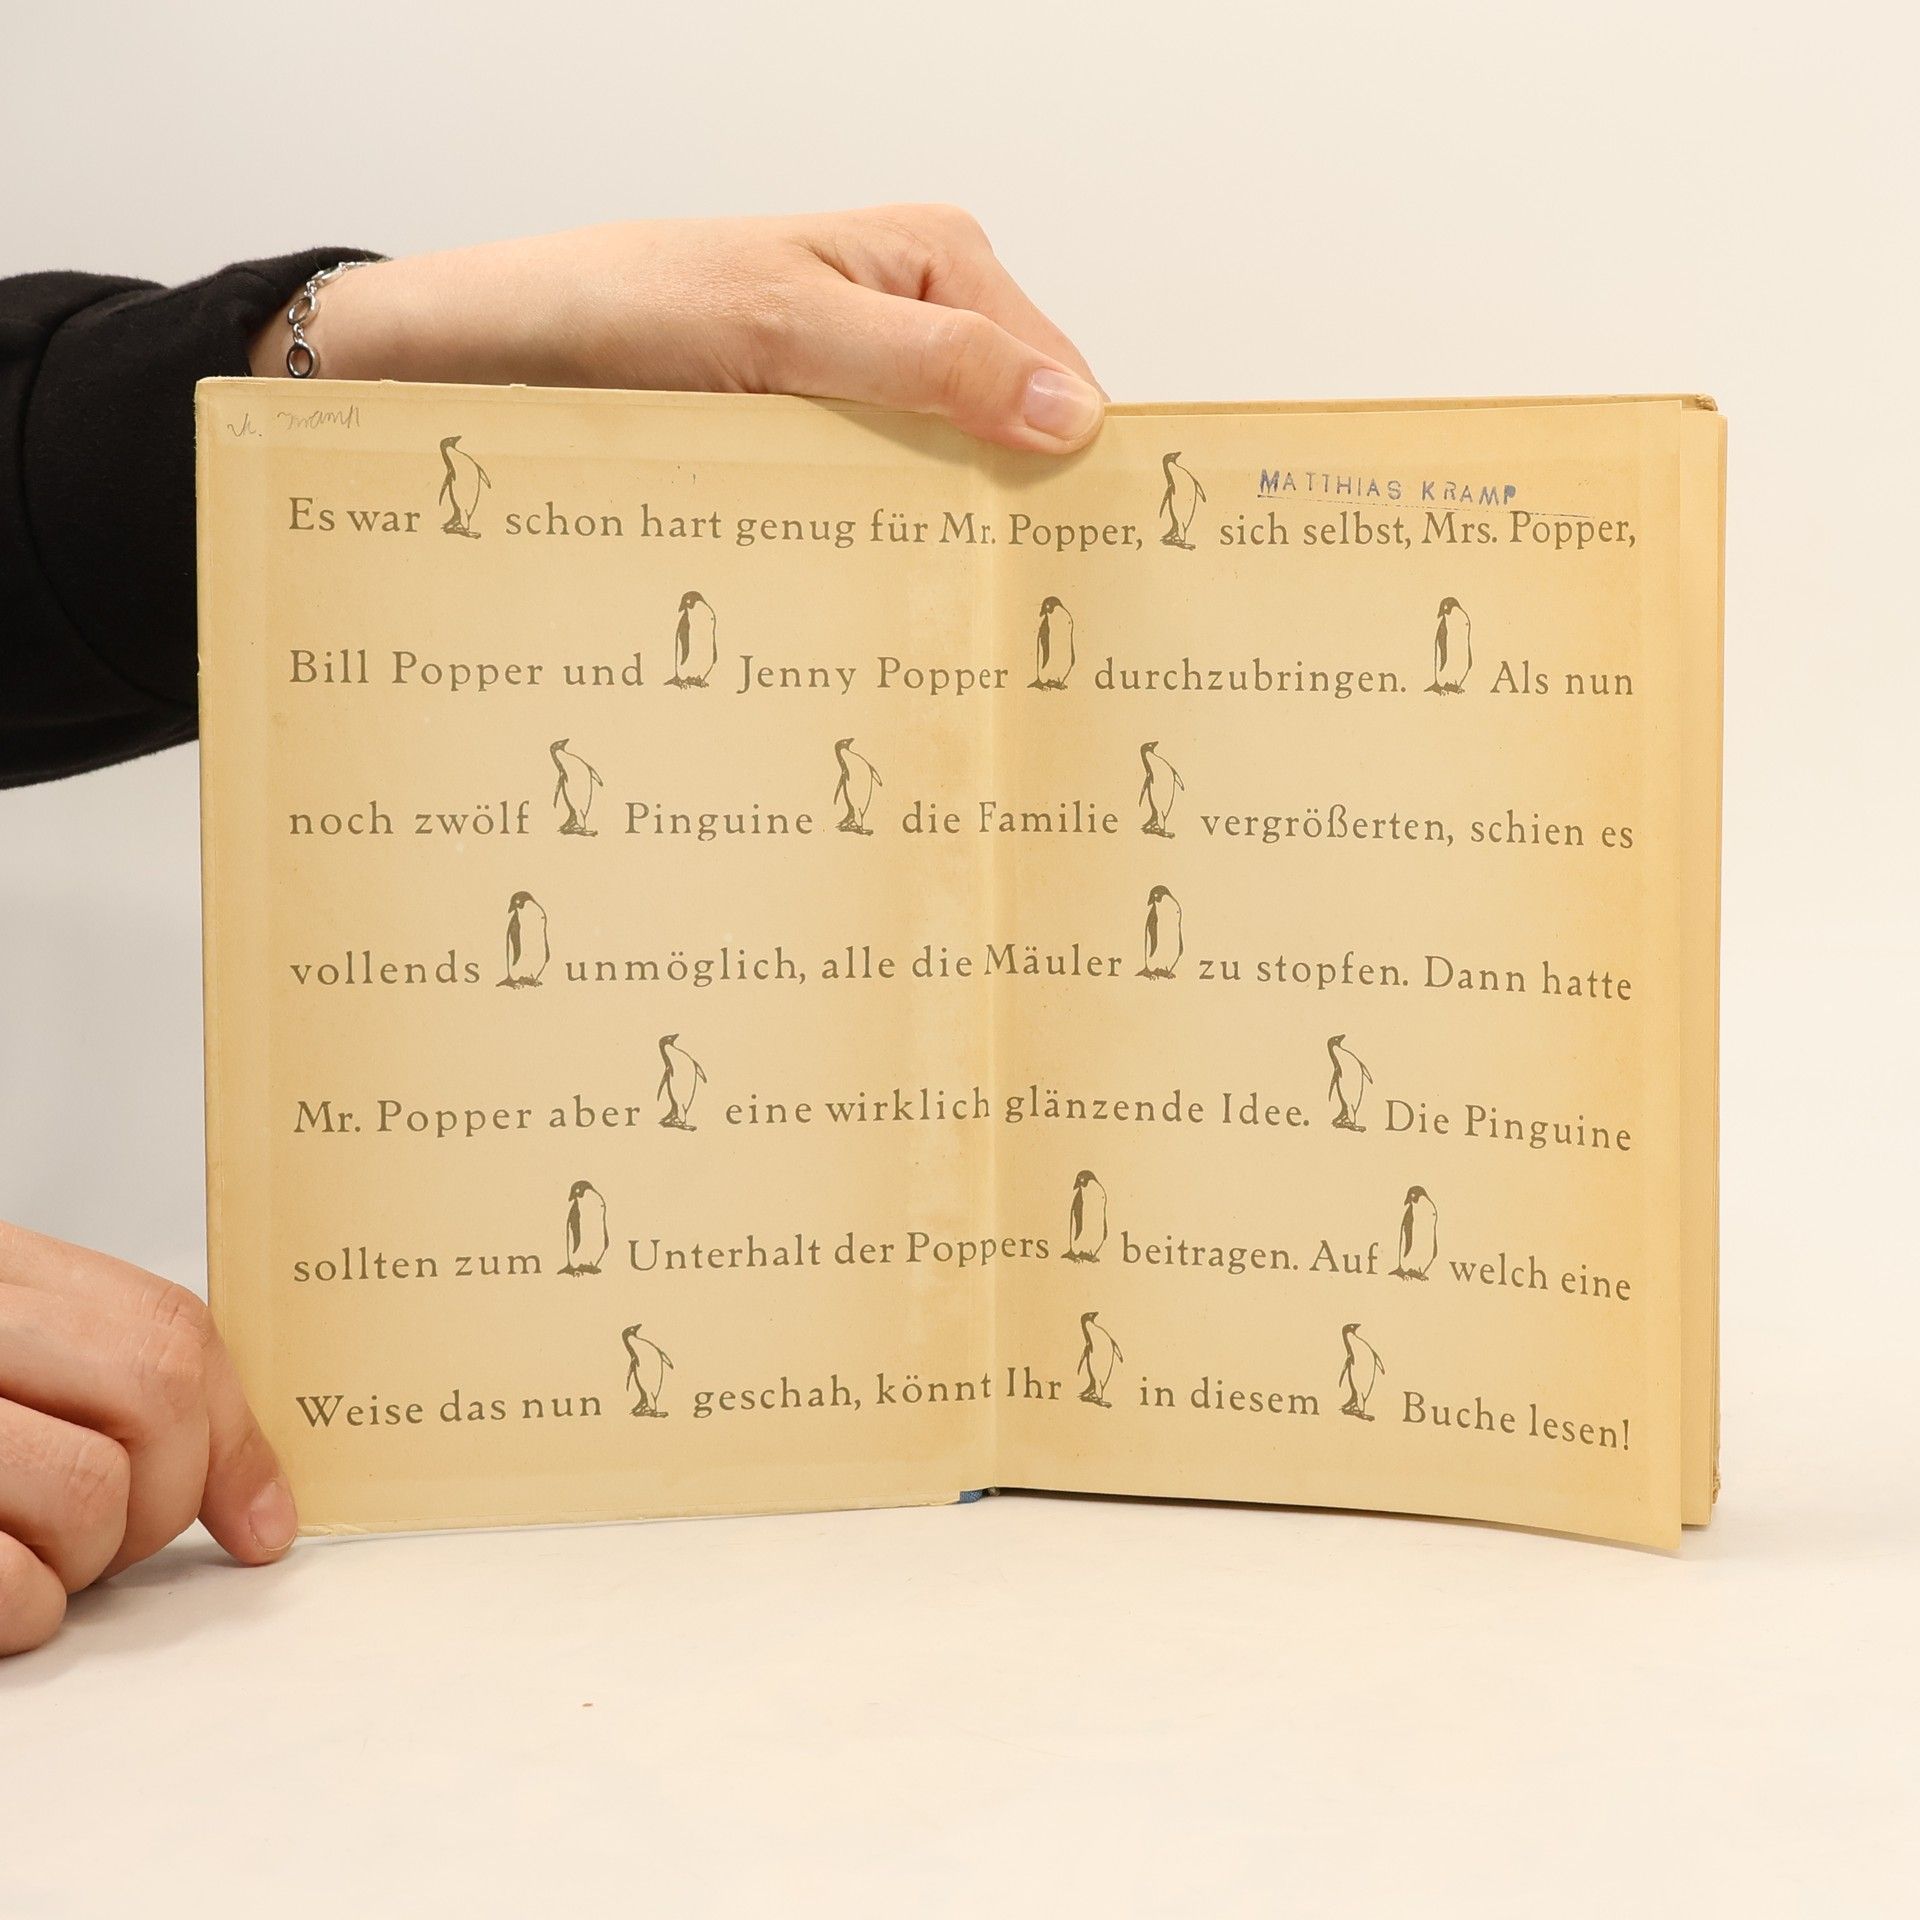 MATTHIAS KRAMP
Es war schon hart genug für Mr. Popper, sich selbst, Mrs. Popper,
Bill Popper und Jenny Popper durchzubringen. Als nun
noch zwölf Pinguine die Familie vergrößerten, schien es
vollends unmöglich, alle die Mäuler zu stopfen. Dann hatte
Mr. Popper aber eine wirklich glänzende Idee. Die Pinguine
sollten zum Unterhalt der Poppers beitragen. Auf welch eine
Weise das nun geschah, könnt Ihr in diesem Buche lesen!